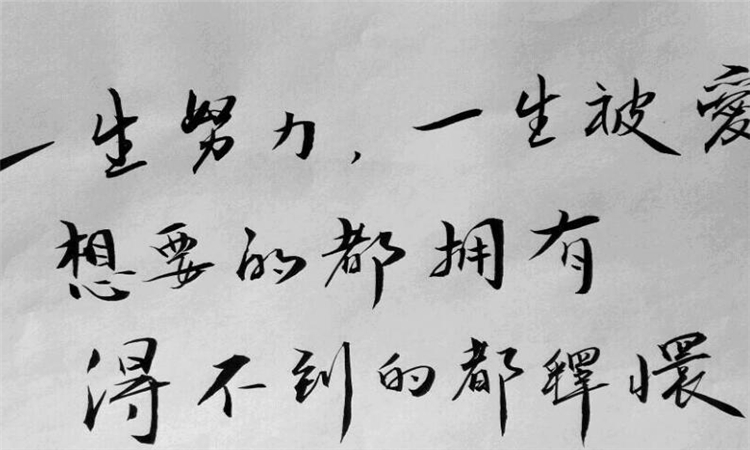 一生努力，一生被愛
想要的都拥有
得不到的都釋懷